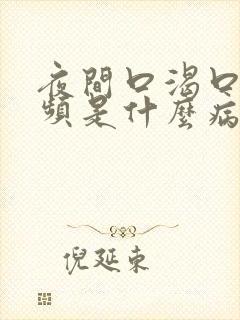 夜間口渴口
頻是什麼病
倪延東